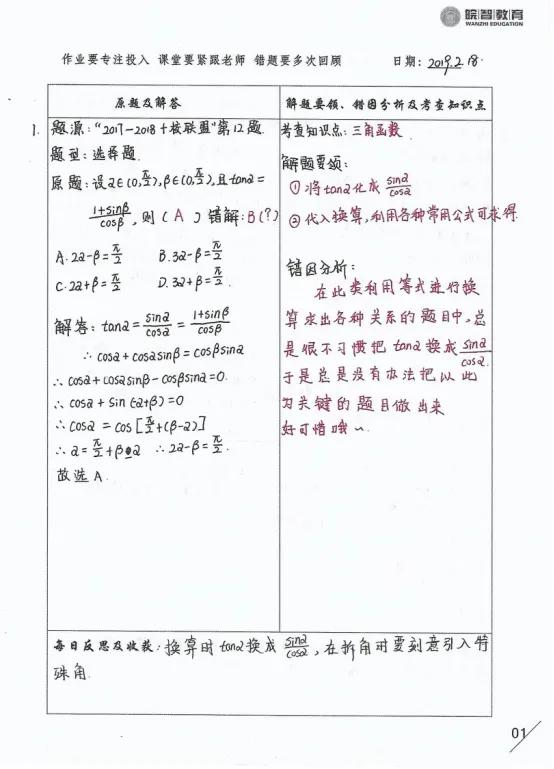 皖智教育
WANZHI EDUCATION
作业要专注投入 课堂要紧跟老师 错题要多次回顾 日期: 2019.2.18.
原题及解答
1. 题源:“2017-2018十校联盟”第12题.
题型: 选择题.
原题: 设α∈(0,π/2), β∈(0,π/2), 且tanα=
(1+sinβ)/cosβ, 则 ( A ) 错解: B(?)
A. 2α-β=π/2 B. 3α-β=π/2.
C. 2α+β=π/2 D. 3α+β=π/2.
解答: tanα=sinα/cosα=(1+sinβ)/cosβ
∴ cosα+cosαsinβ=cosβsinα
∴ cosα+cosαsinβ-cosβsinα=0.
∴ cosα+sin(-α+β)=0
∴ cosα=cos[π/2+(β-α)]
∴ α=π/2+β-α ∴ 2α-β=π/2.
故选A.
解题要领、错因分析及考查知识点
考查知识点: 三角函数
解题要领:
①将tanα化成sinα/cosα.
②代入换算,利用各种常用公式可求得.
错因分析:
在此类利用等式进行换
算求出各种关系的题目中,总
是很不习惯把tanα换成sinα/cosα.
于是总是没有办法把以此
为关键的题目做出来
好可惜哦~
每日反思及收获: 换算时tanα换成sinα/cosα, 在拆角时要刻意引入特
殊角.
01